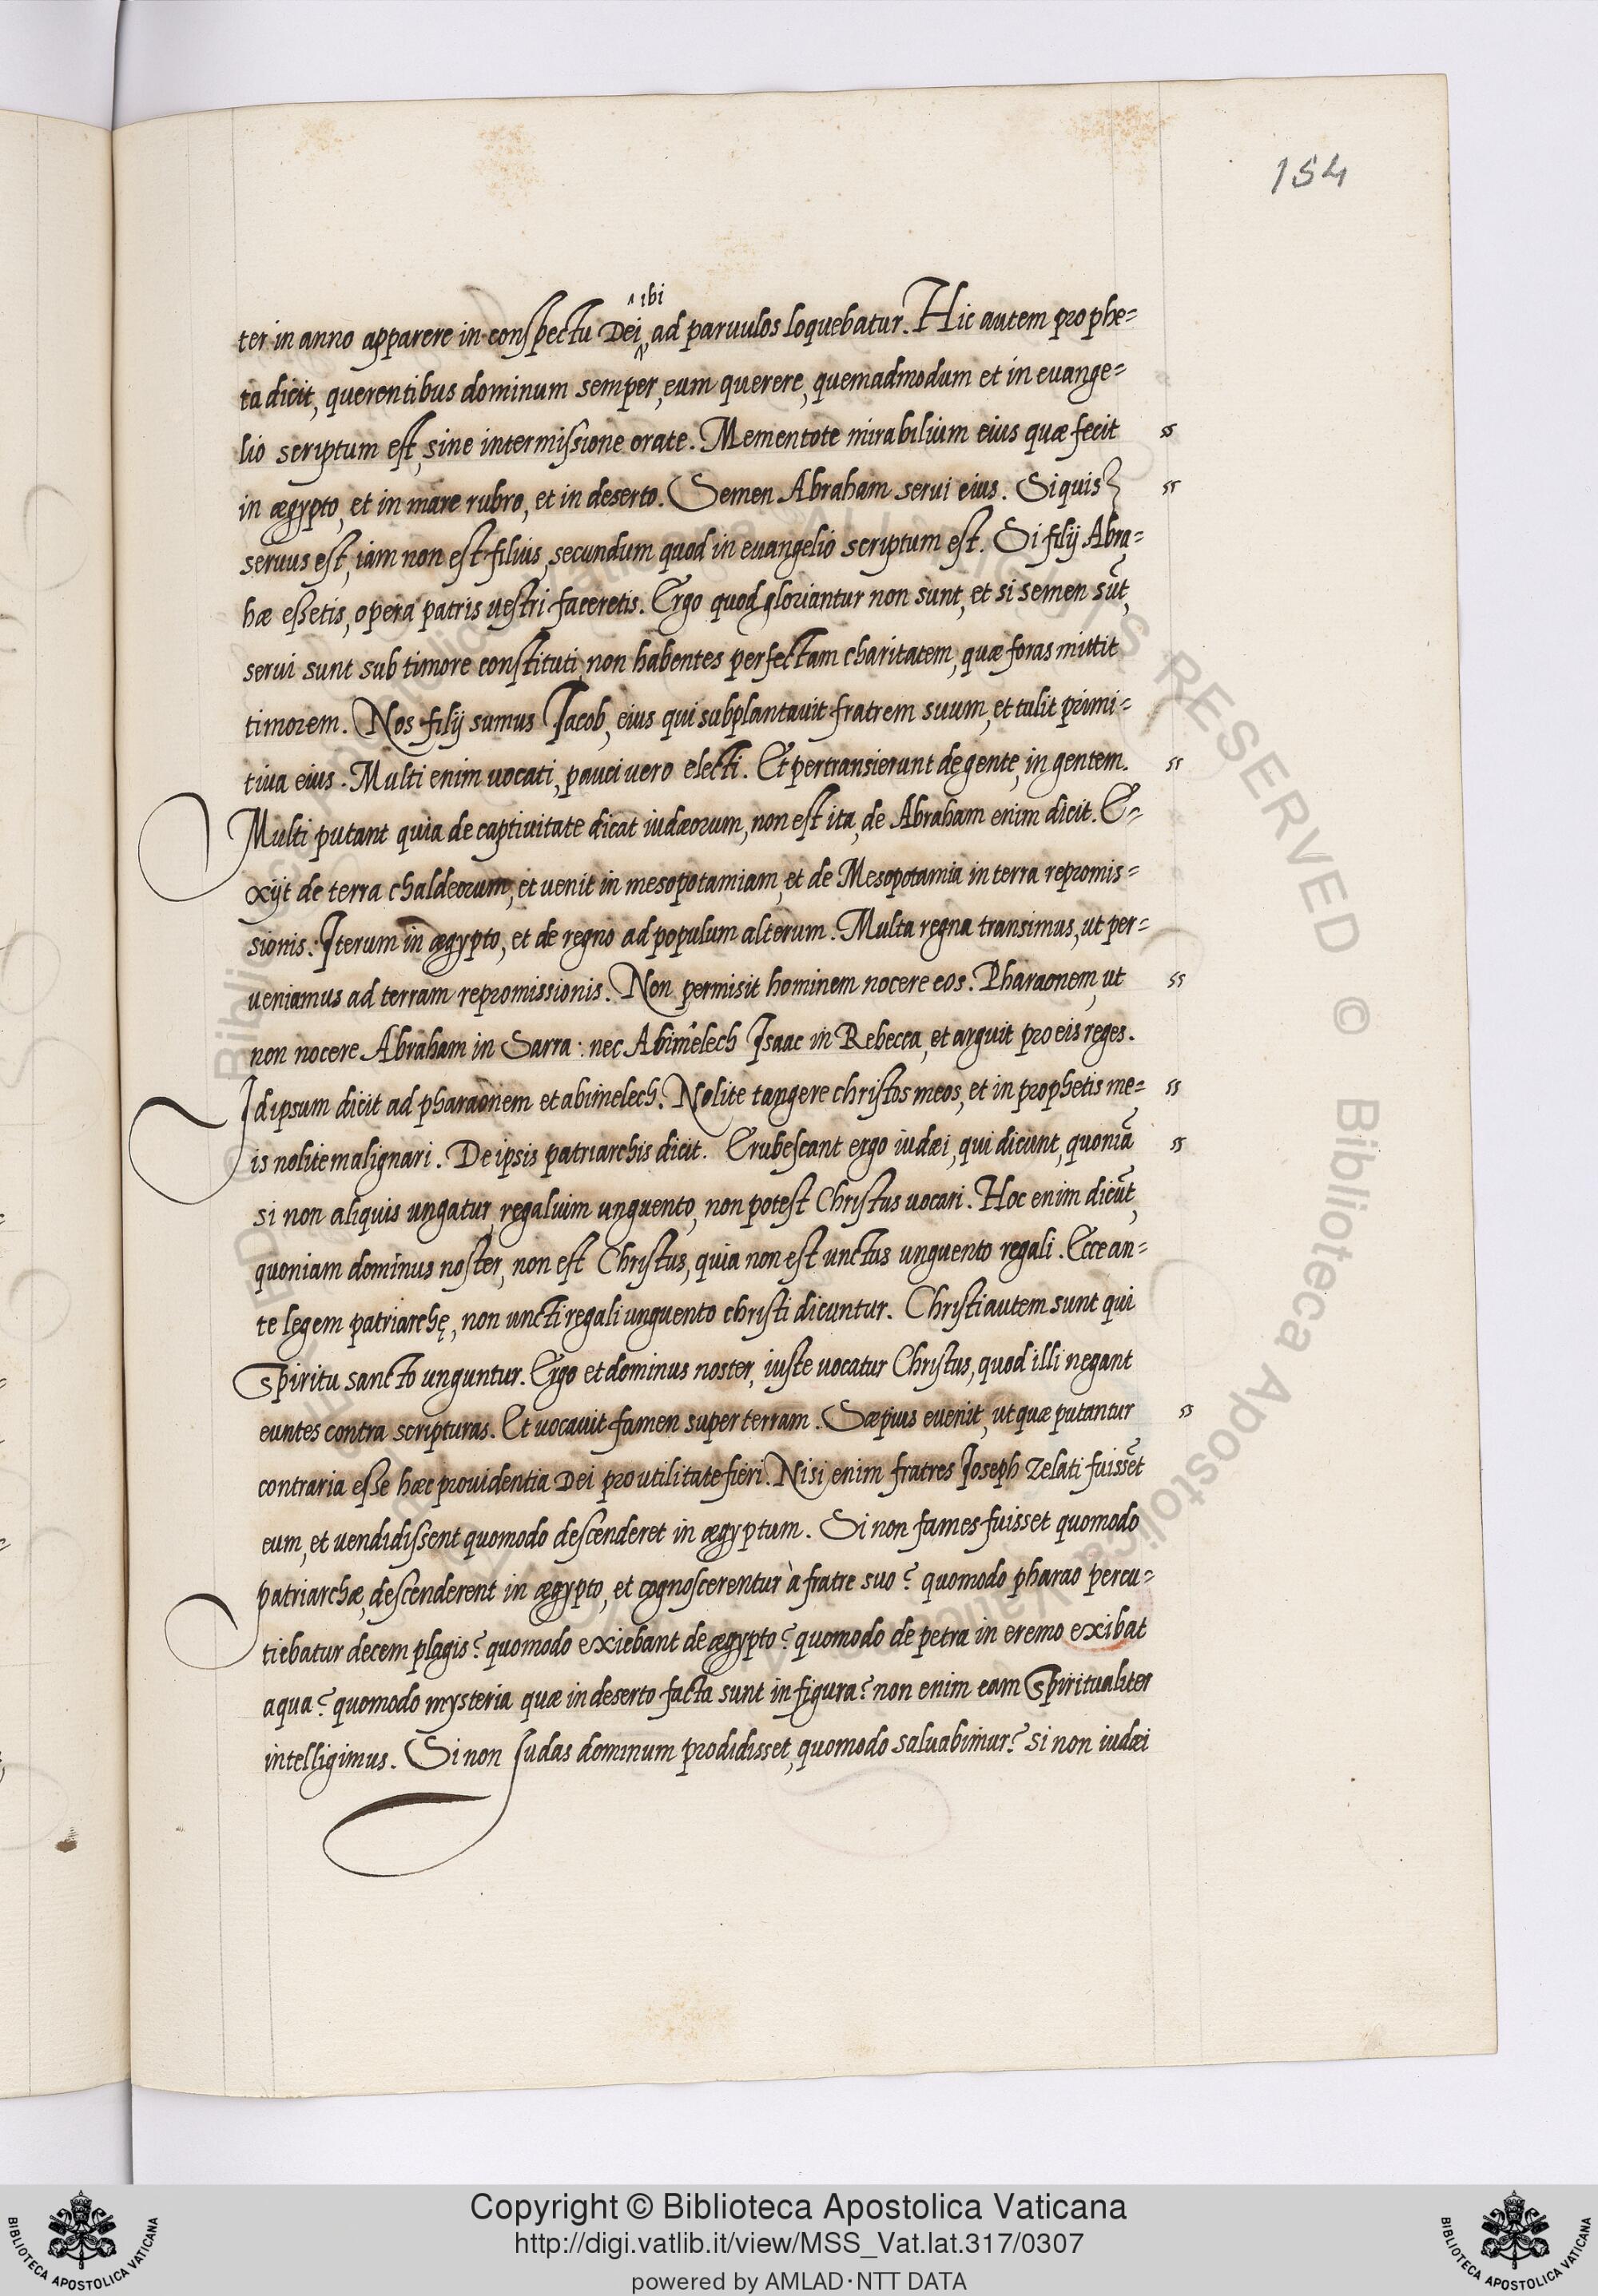 154
ibi
ter in anno apparere in conspectu Dei, ad paruulos loquebatur. Hic autem prophe=
ta dicit, querentibus dominum semper, eum querere, quemadmodum et in euange=
lio scriptum est, sine intermissione orate. Mementote mirabilium eius quæ fecit
in ægypto, et in mare rubro, et in deserto. Semen Abraham serui eius. Si quis
seruus est, iam non est filius, secundum quod in euangelio scriptum est. Si filij Abra=
hæ essetis, opera patris uestri faceretis. Ergo quod gloriantur non sunt, et si semen sūt,
serui sunt sub timore constituti, non habentes perfectam charitatem, quæ foras mittit
timorem. Nos filij sumus Jacob, eius qui subplantauit fratrem suum, et tulit primi=
tiua eius. Multi enim uocati, pauci uero electi. Et pertransierunt de gente, in gentem.
Multi putant quia de captiuitate dicat iudæorum, non est ita, de Abraham enim dicit. E=
xijt de terra chaldeorum, et uenit in mesopotamiam, et de Mesopotamia in terra repromis=
sionis. Iterum in ægypto, et de regno ad populum alterum. Multa regna transimus, ut per=
ueniamus ad terram repromissionis. Non permisit hominem nocere eos. Pharaonem, ut
non nocere Abraham in Sarra: nec Abimelech Isaac in Rebecca, et arguit pro eis reges.
Idipsum dicit ad pharaonem et abimelech. Nolite tangere christos meos, et in prophetis me=
is nolite malignari. De ipsis patriarchis dicit. Erubescant ergo iudæi, qui dicunt, quoniā
si non aliquis ungatur, regaluim unguento, non potest Christus uocari. Hoc enim dicūt,
quoniam dominus noster, non est Christus, quia non est unctus unguento regali. Ecce an=
te legem patriarchę, non uncti regali unguento christi dicuntur. Christi autem sunt qui
Spiritu sancto unguntur. Ergo et dominus noster, iuste uocatur Christus, quod illi negant
euntes contra scripturas. Et uocauit famen super terram. Sæpius euenit, ut quæ putantur
contraria esse hæc prouidentia Dei pro utilitate fieri. Nisi enim fratres Joseph zelati fuissēt
eum, et uendidissent quomodo descenderet in ægyptum. Si non fames fuisset quomodo
patriarchæ, descenderent in ægypto, et cognoscerentur à fratre suo? quomodo pharao percu=
tiebatur decem plagis? quomodo exiebant de ægypto? quomodo de petra in eremo exibat
aqua? quomodo mysteria quæ in deserto facta sunt in figura? non enim eam Spiritualiter
intelligimus. Si non Judas dominum prodidisset, quomodo saluabimur? Si non iudæi
Copyright © Biblioteca Apostolica Vaticana
http://digi.vatlib.it/view/MSS_Vat.lat.317/0307
powered by AMLAD·NTT DATA
BIBLIOTECA APOSTOLICA VATICANA
BIBLIOTECA APOSTOLICA VATICANA